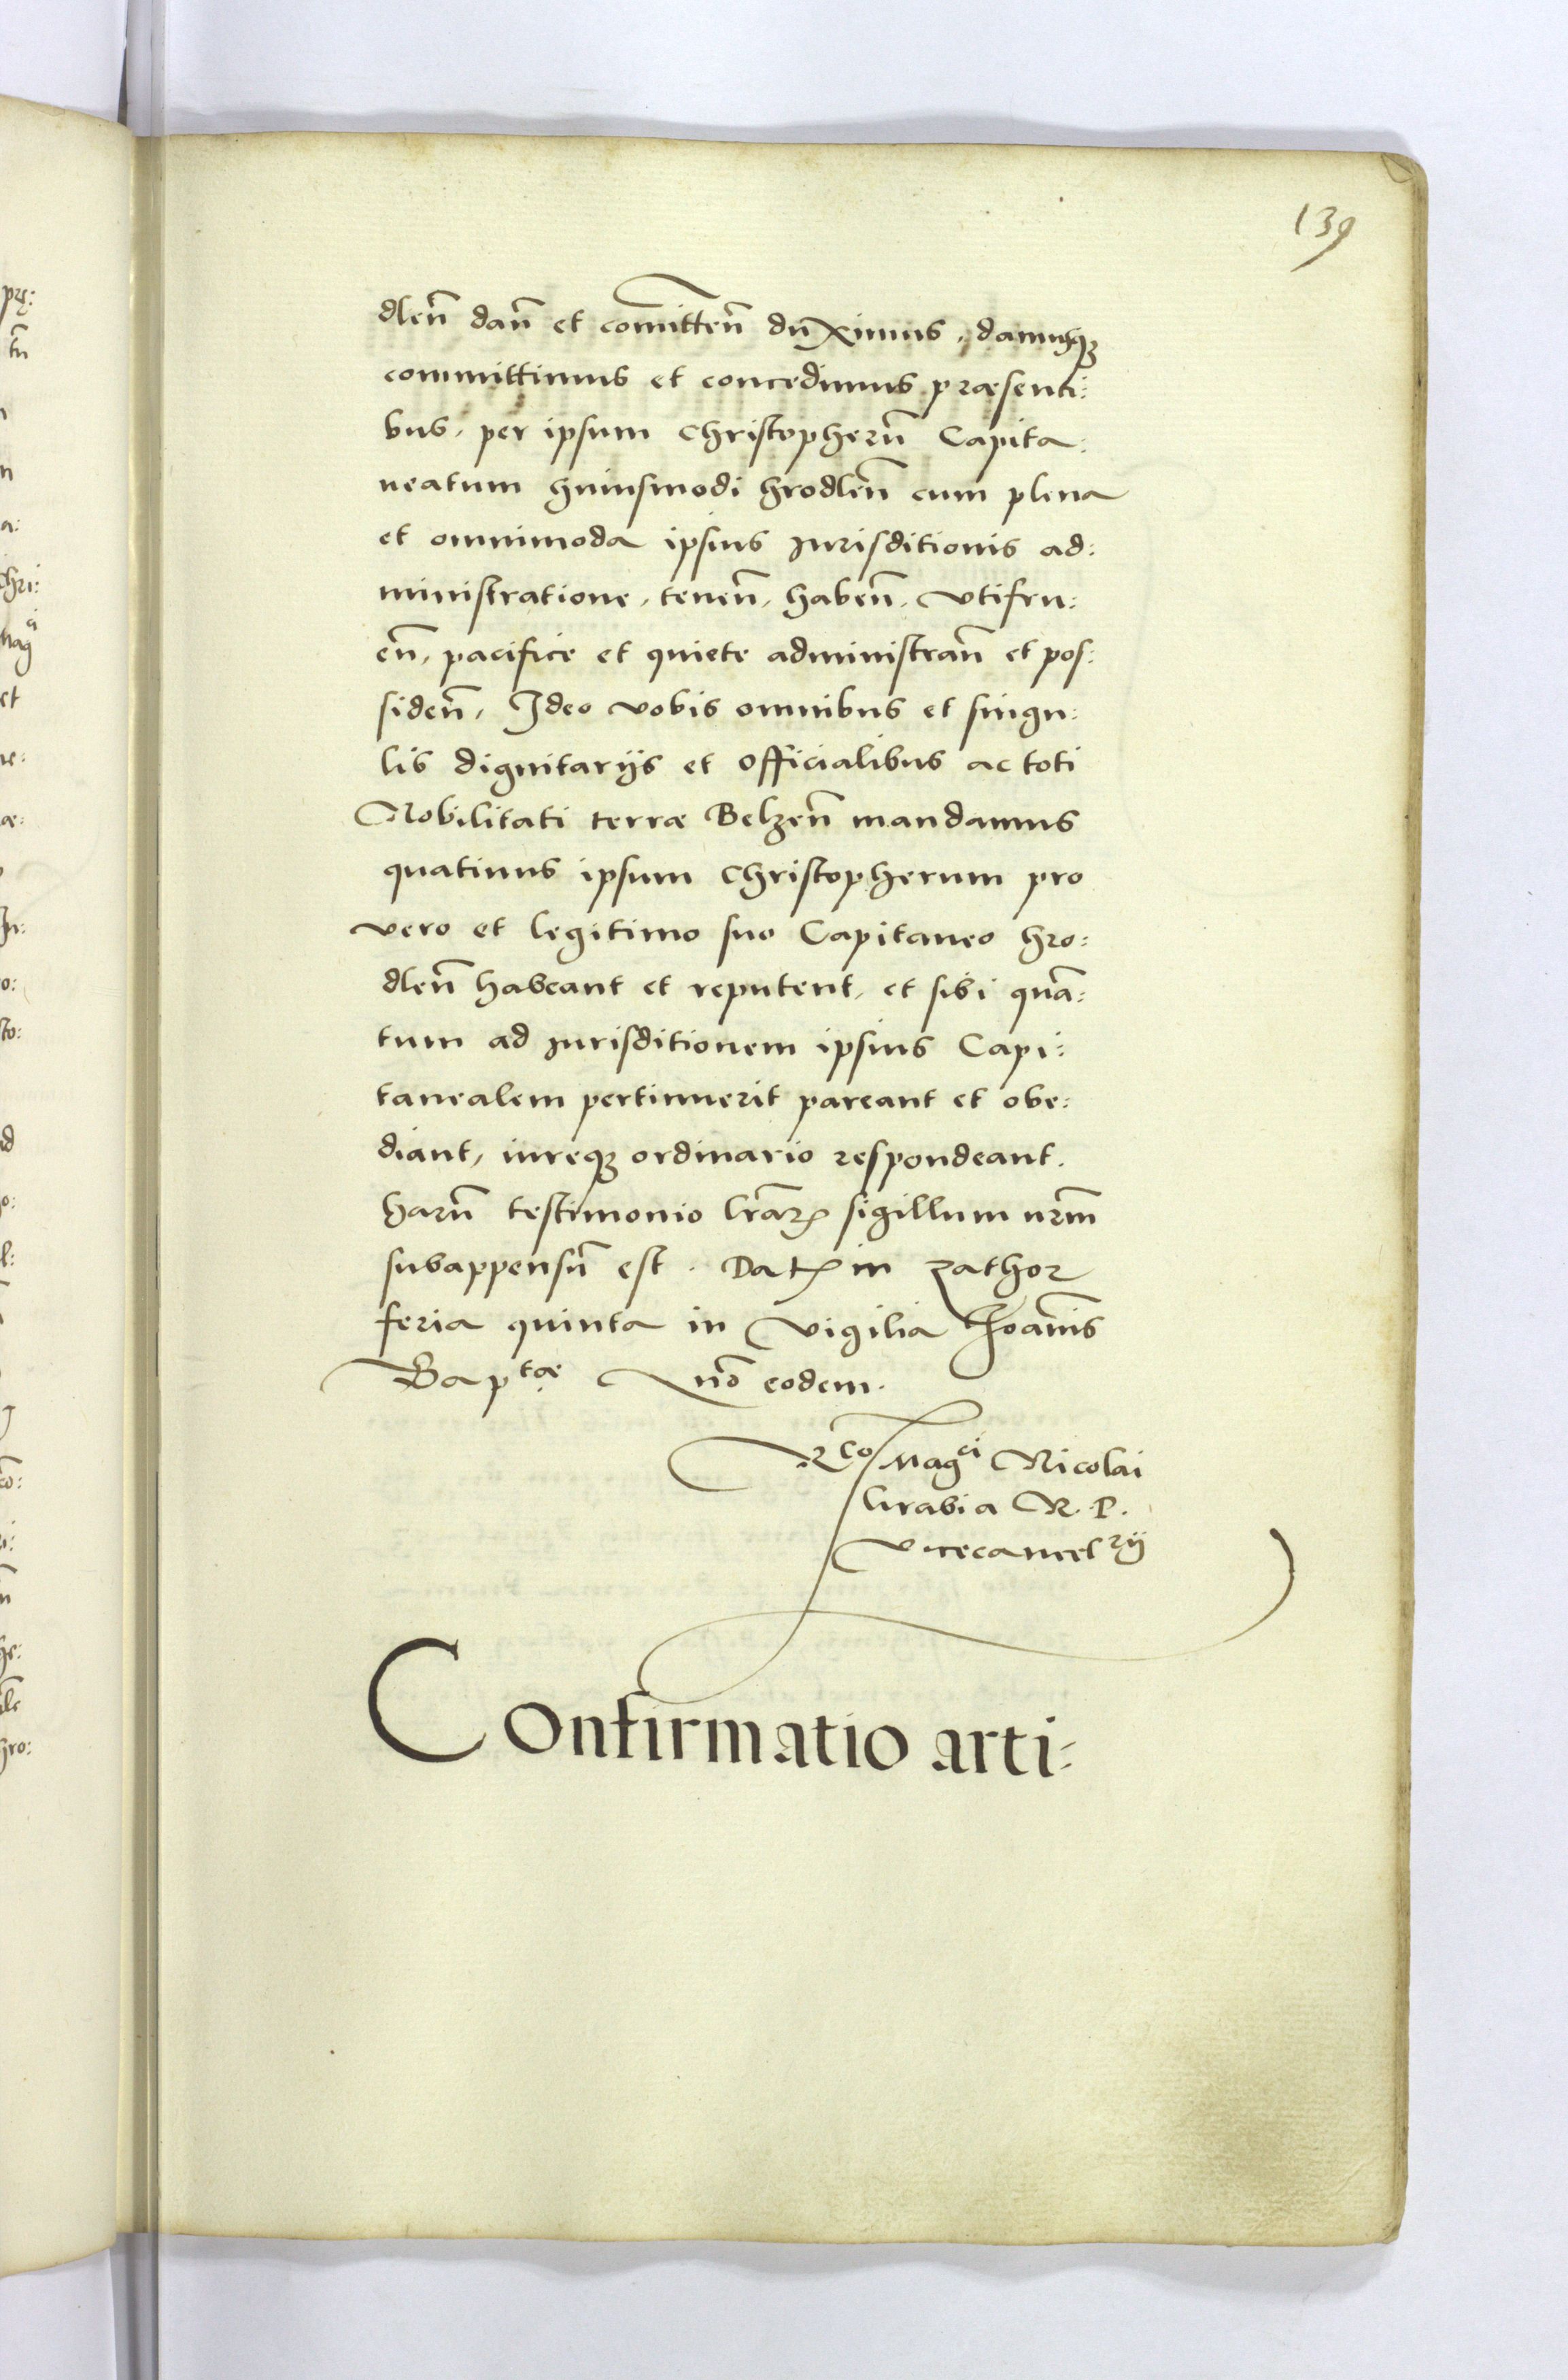 139
dlen̄ dan̄ et com̄itten̄ duximus, damusq3
committimus et concedimus præsenti:
bus, per ipsum Christopherū Capita:
neatum huiusmodi hrodlen̄ cum plena
et omnimoda ipsius Jurisditionis ad:
ministratione, tenen̄, haben̄, vtifru:
en̄, pacifice et quiete administran̄ et pos:
siden̄, Ideo vobis omnibus et singu:
lis dignitarijs et officialibus ac toti
Nobilitati terræ Belzen̄ mandamus
quatinus ipsum Christopherum pro
vero et legitimo suo Capitaneo hro:
dlen̄ habeant et reputent, et sibi quā:
tum ad Jurisditionem ipsius Capi:
tanealem pertinuerit pareant et obe:
diant, iureq3 ordinario respondeant.
harū testimonio lrāꝝ sigillum nrm̄
subappensū est. Datꝝ in zathor
feria quinta in vigilia Joannis
Baptæ Anō eodem.
Rᶜᵒ Magᶜⁱ Nicolai
Grabia R. P.
vicecancelrij
Confirmatio arti: